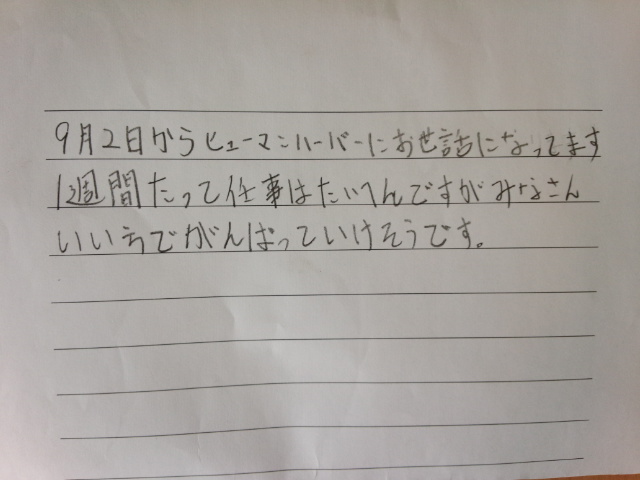 9月2日からヒューマンハーバーにお世話になってます
1週間たって仕事はたいへんですがみなさん
いい方でがんばっていけそうです。